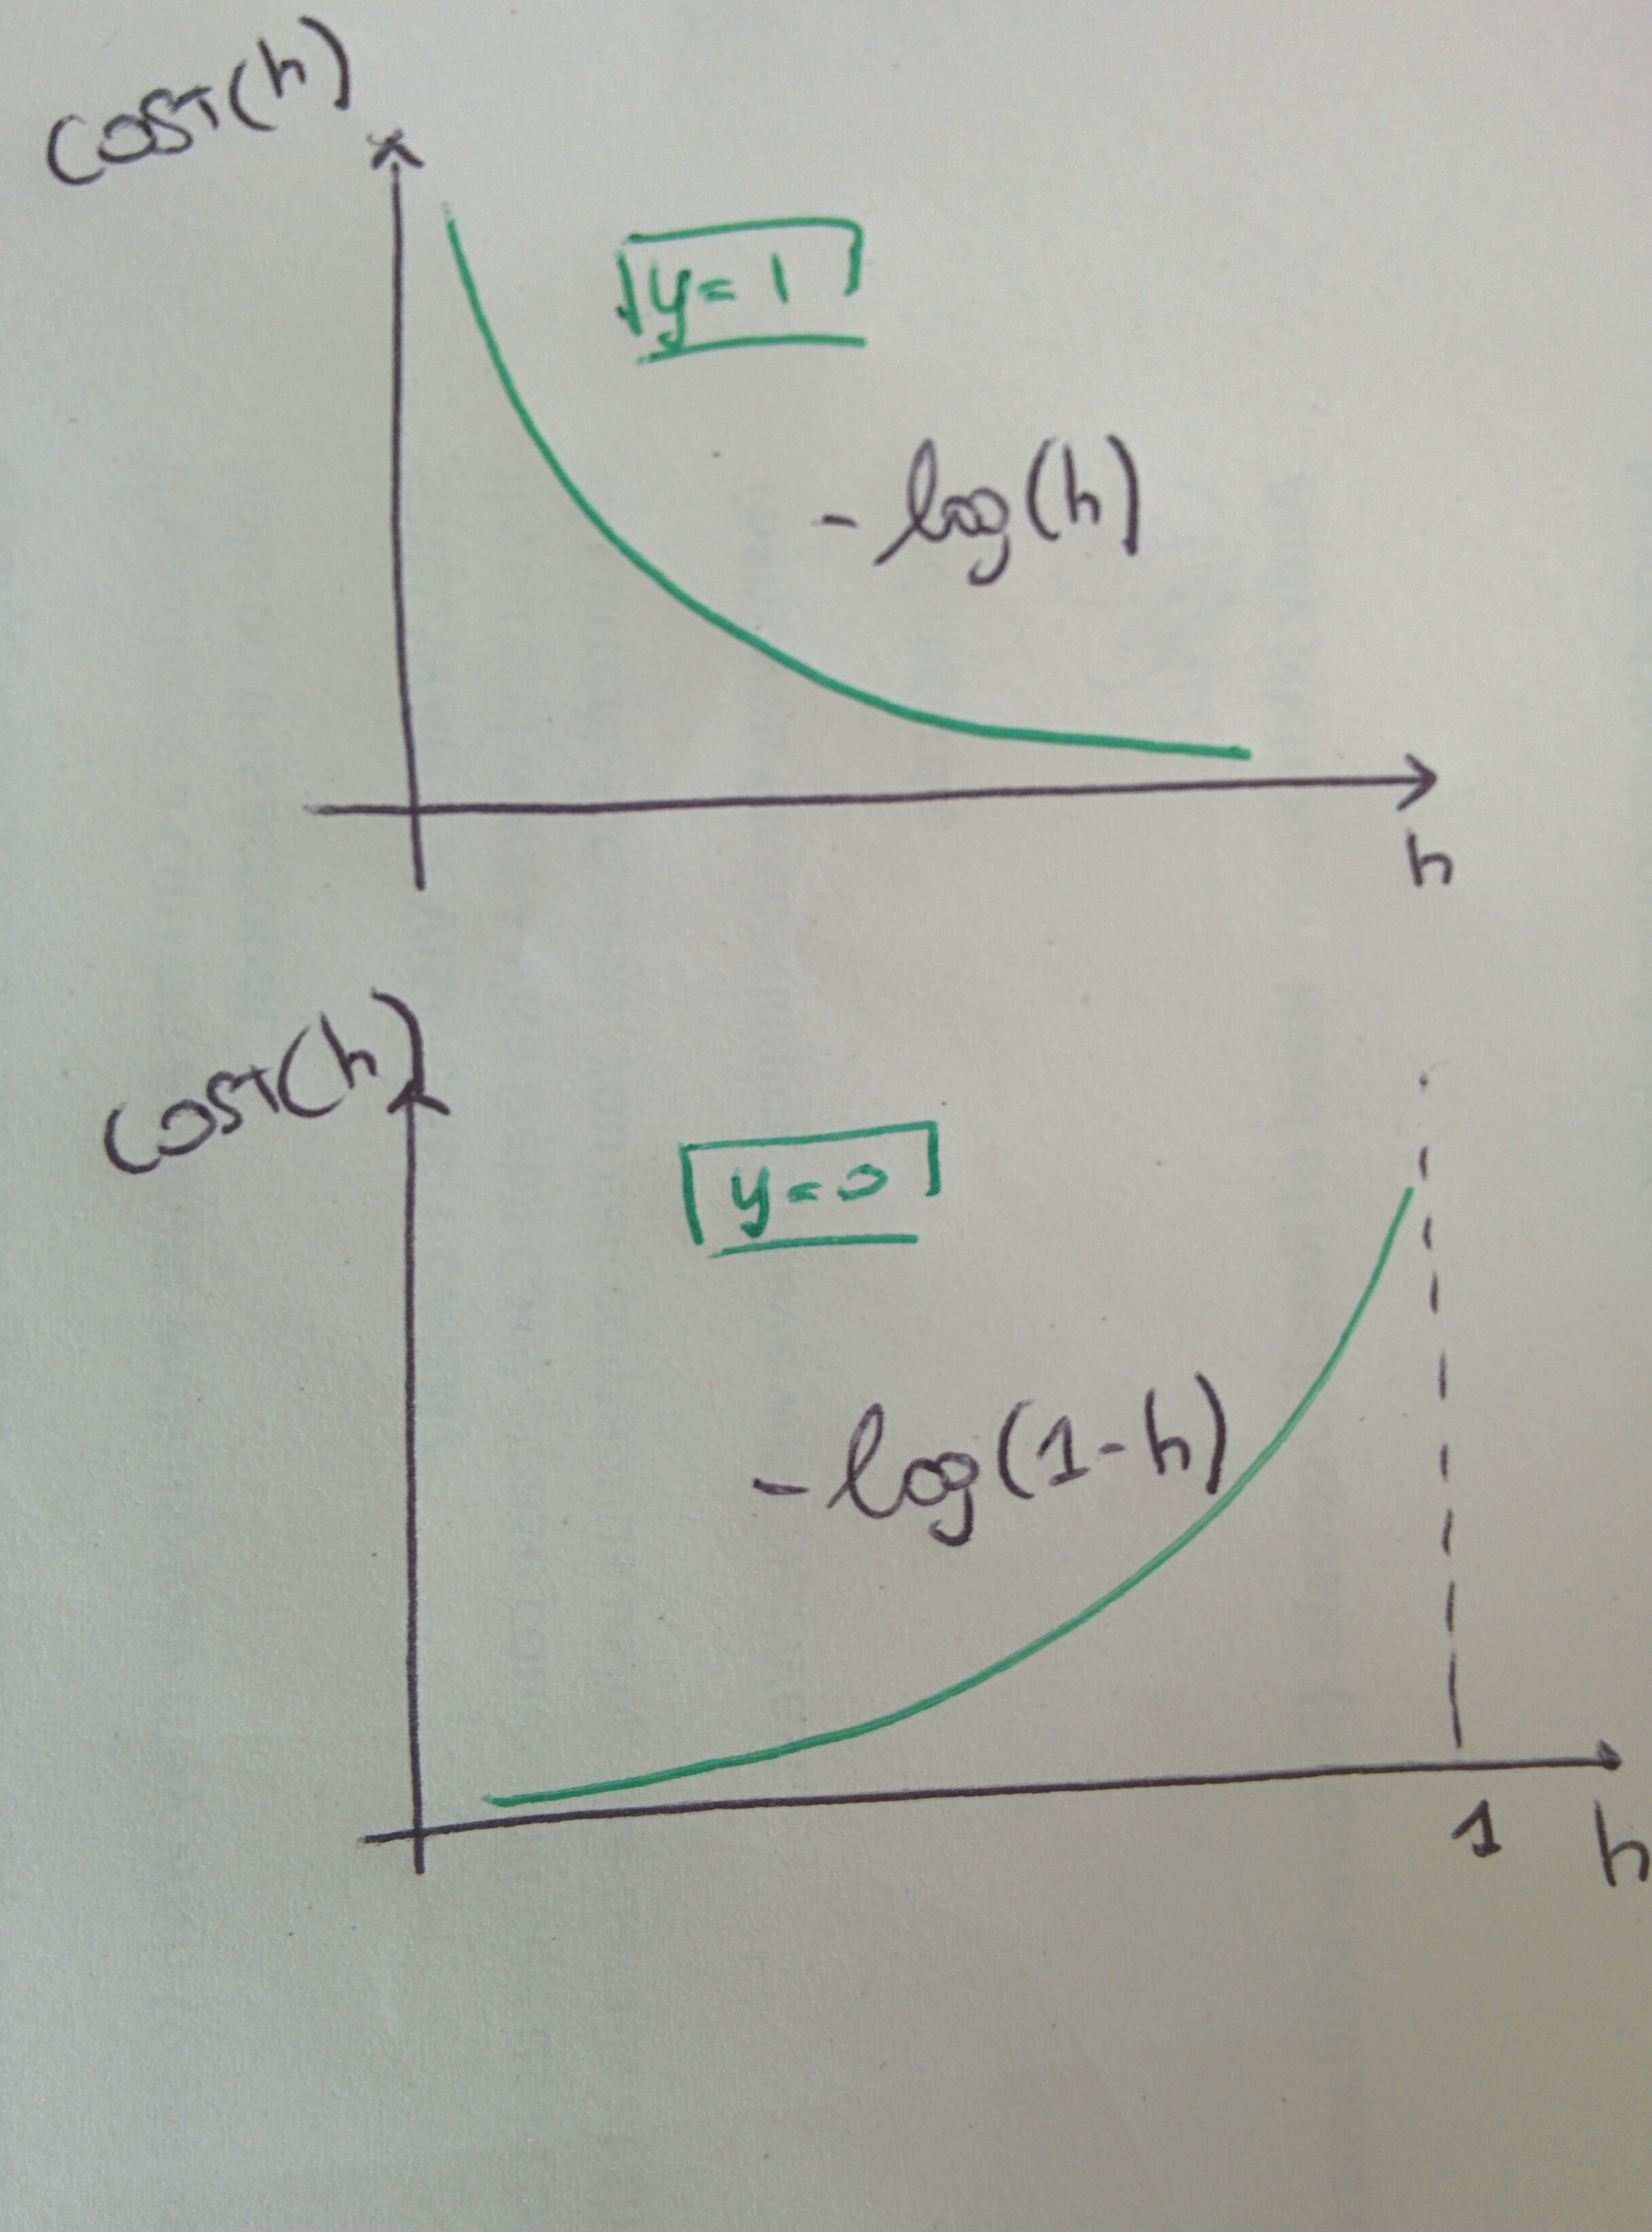 COST(h)
y=1
-log(h)
h
COST(h)
y=0
-log(1-h)
1
h